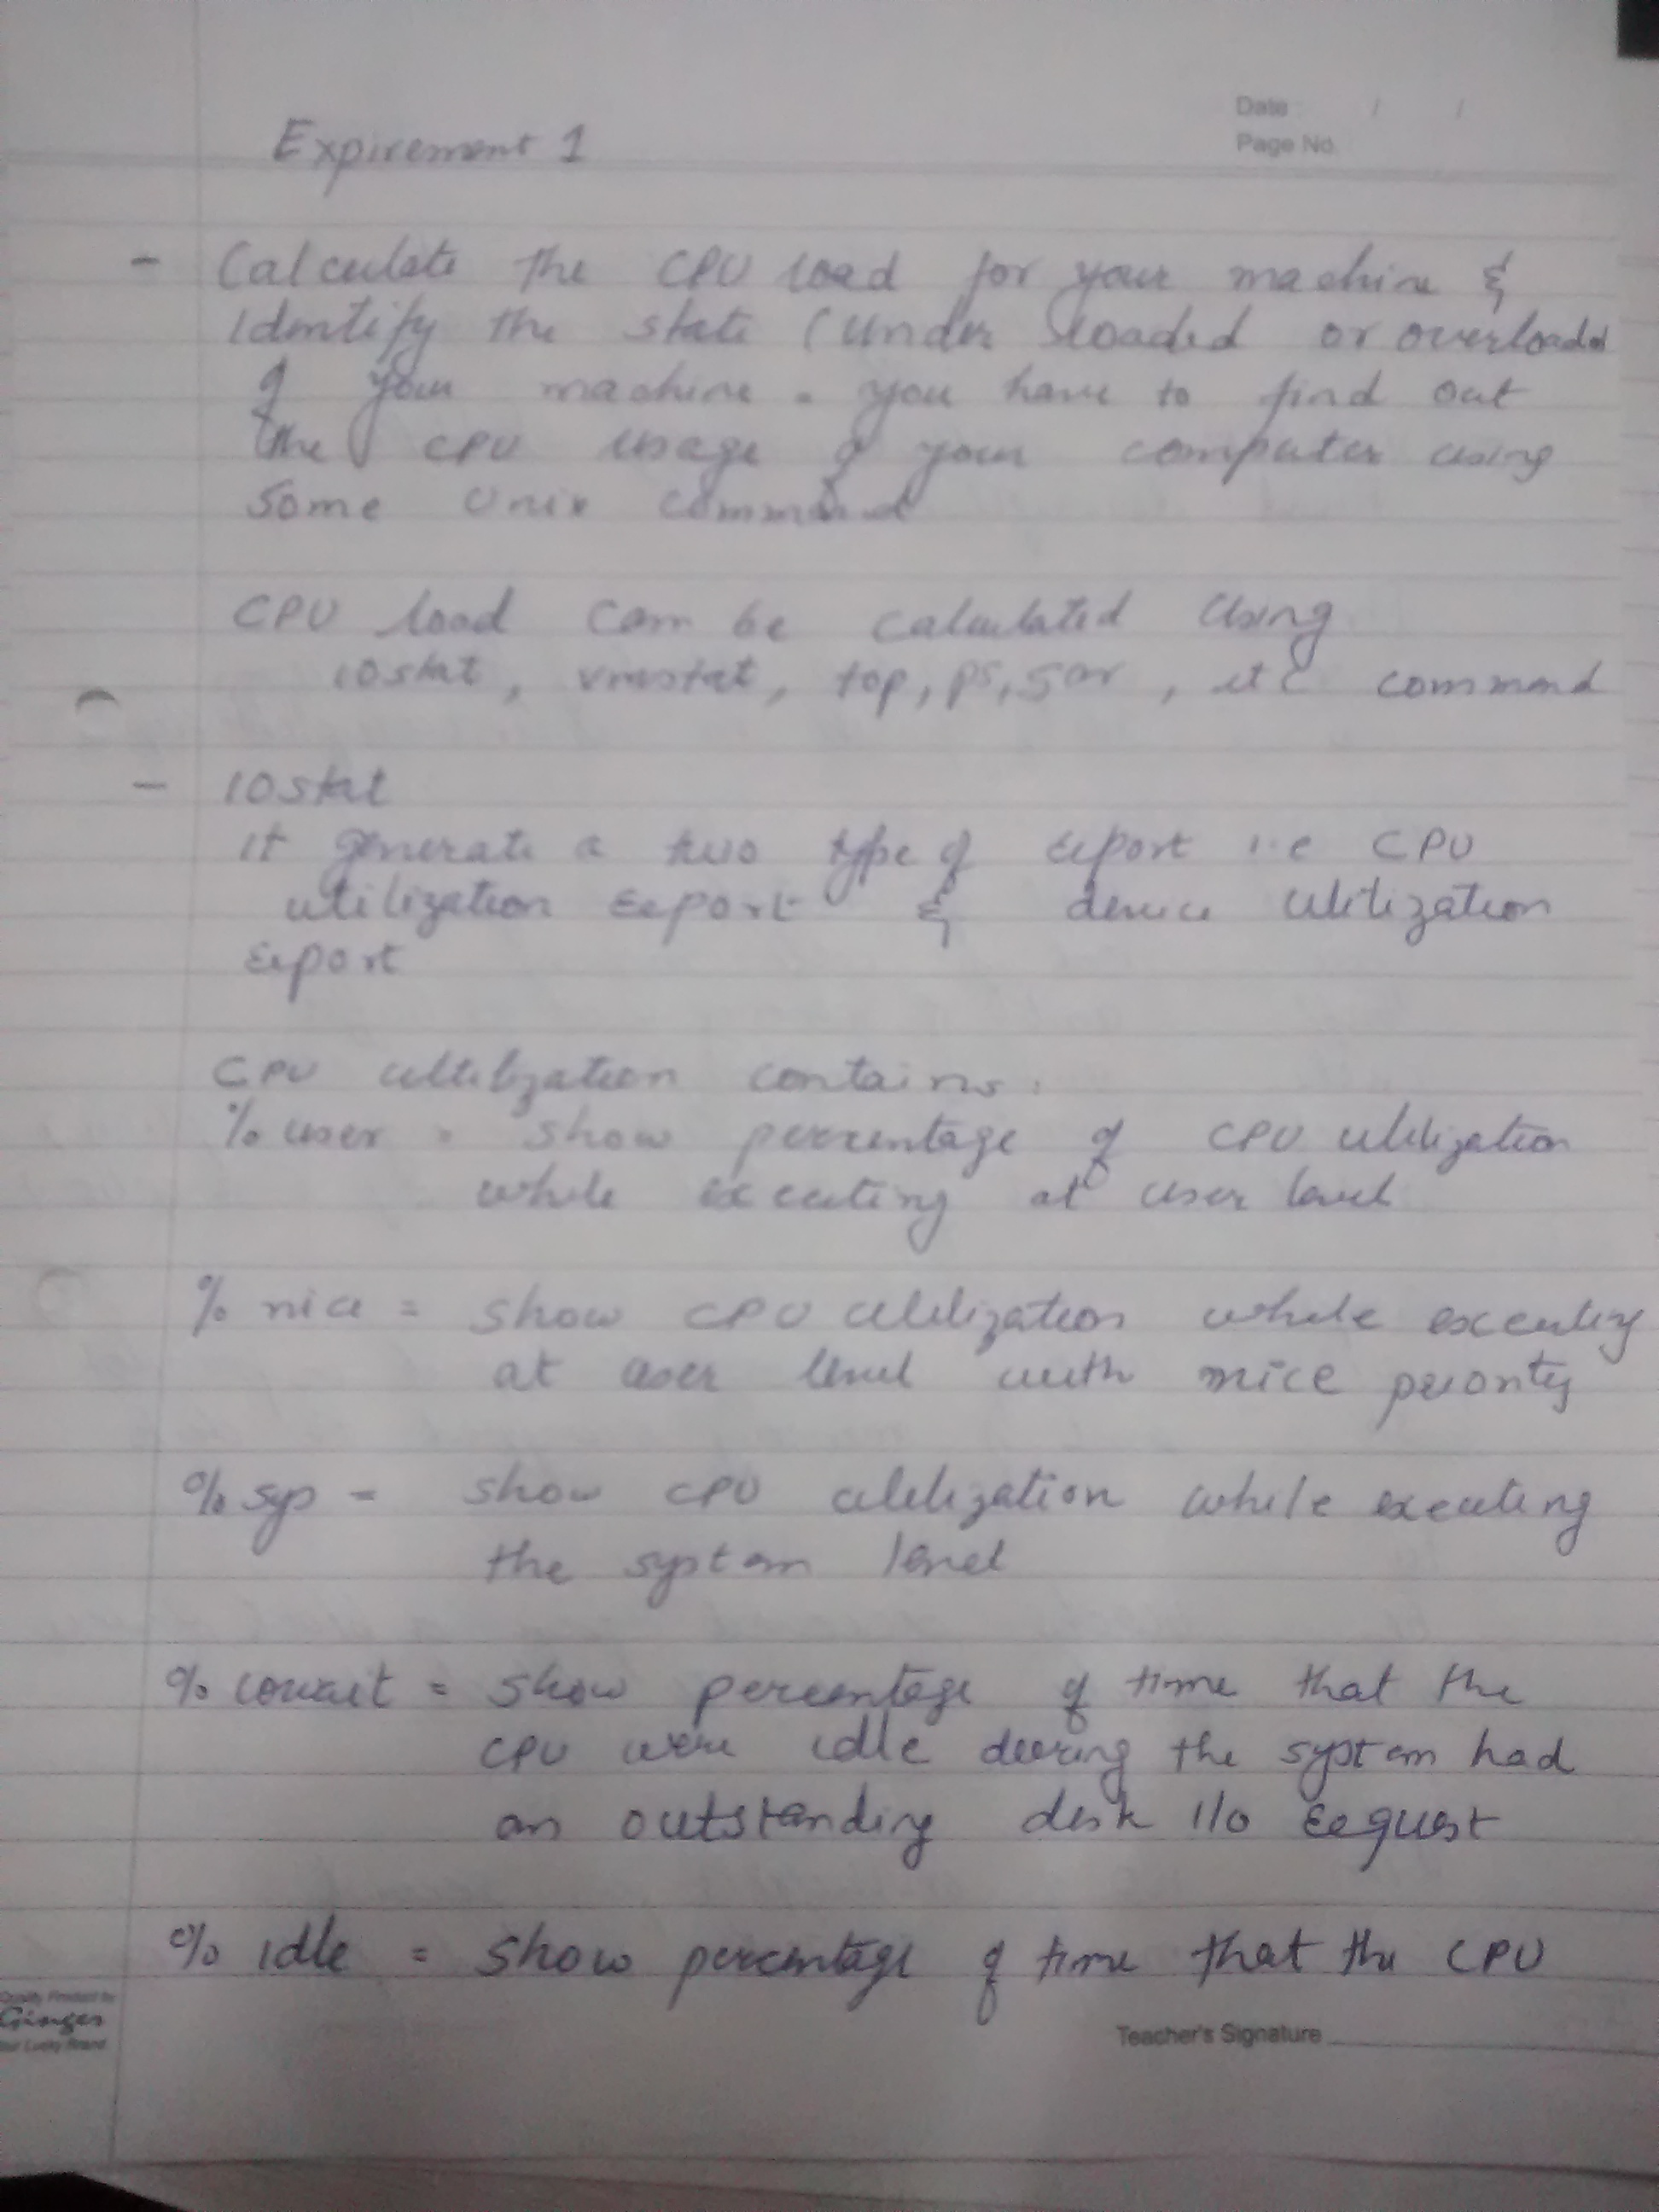 Date : / /
Page No.
Expirement 1
- Calculate the CPU load for your machine &
Identify the state (under loaded or overloaded
of your machine . you have to find out
the CPU usage of your computer using
some Unix command
CPU load can be calculated using
iostat, vmstat, top, ps, sar, etc command
- iostat
it generate a two type of report i.e CPU
utilization report & device utilization
report
CPU utilization contains:
% user = show percentage of CPU utilization
while executing at user level
% nice = show CPU utilization while executing
at user level with nice priority
% sys = show CPU utilization while executing
the system level
% iowait = show percentage of time that the
CPU were idle during the system had
an outstanding disk I/O request
% idle = show percentage of time that the CPU
Quality Product by
Ginger
Your Lucky Brand
Teacher's Signature